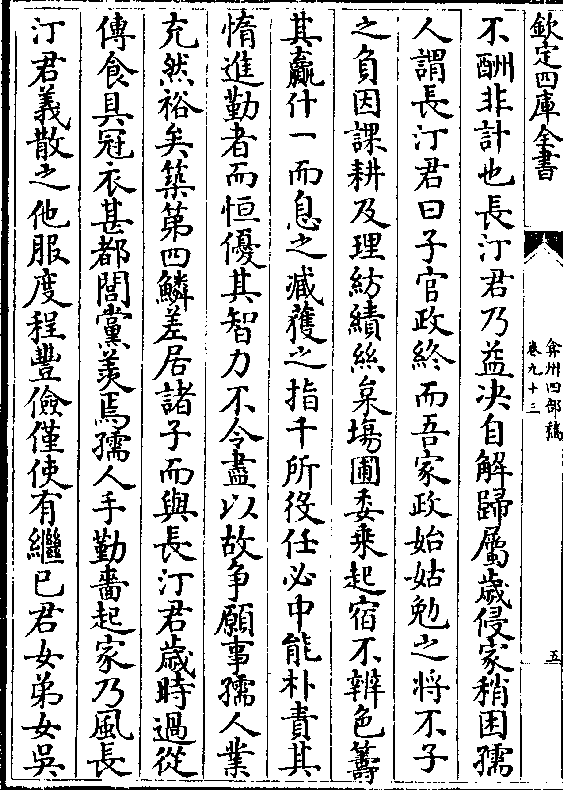 欽定四庫全書
弇州四部稿
卷九十三
五
不酬非計也長汀君乃益决自解歸屬歳侵家稍困孺
人謂長汀君曰子官政終而吾家政始姑勉之将不子
之負因課耕及理紡績絲枲塲圃委乗起宿不辨色籌
其贏什一而息之臧獲之指千所役任必中能朴責其
惰進勤者而恒優其智力不令盡以故争願事孺人業
充然裕矣築第四鱗差居諸子而與長汀君歳時過從
傳食具冠衣甚都閭黨羡焉孺人手勤嗇起家乃風長
汀君義散之他服度程豐儉僅使有繼已君女弟女吳